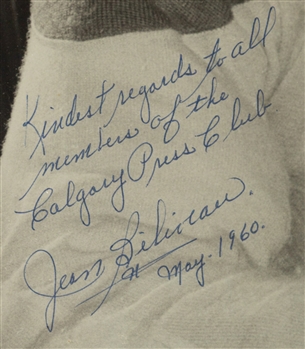 Kindest regards to all
members of the
Calgary Press Club
Jean Béliveau.
May. 1960.